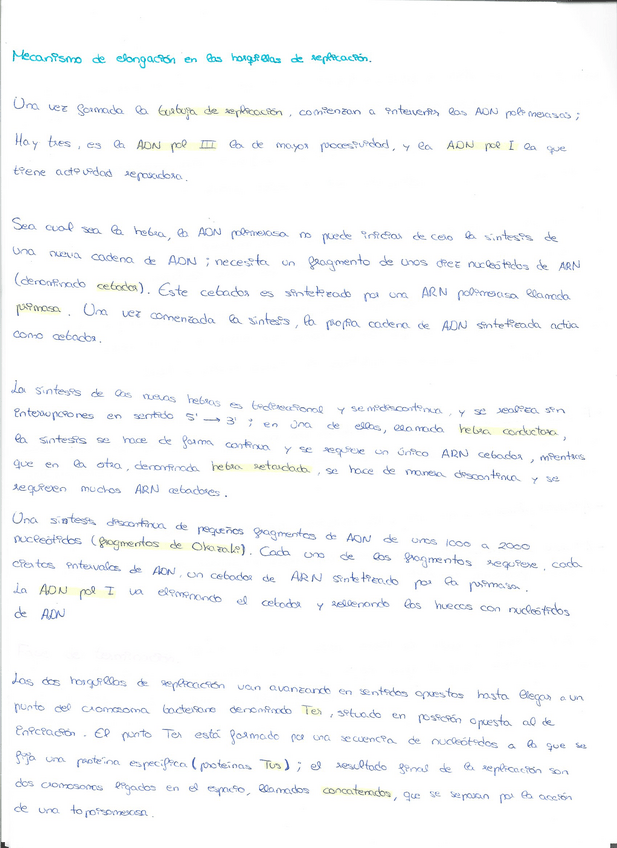 Mecanismo de elongación en las horquillas de replicación.
Una vez formada la burbuja de replicación, comienzan a intervenir las ADN polimerasas;
Hay tres, es la ADN pol III la de mayor procesividad, y la ADN pol I la que
tiene actividad reparadora.
Sea cual sea la hebra, la ADN polimerasa no puede iniciar de cero la síntesis de
una nueva cadena de ADN; necesita un fragmento de unos diez nucleótidos de ARN
(denominado cebador). Este cebador es sintetizado por una ARN polimerasa llamada
primasa. Una vez comenzada la síntesis, la propia cadena de ADN sintetizada actúa
como cebador.
La síntesis de las nuevas hebras es bidireccional y semidiscontinua, y se realiza sin
interrupciones en sentido 5' → 3'; en una de ellas, llamada hebra conductora,
la síntesis se hace de forma continua y se requiere un único ARN cebador, mientras
que en la otra, denominada hebra retardada, se hace de manera discontinua y se
requieren muchos ARN cebadores.
Una síntesis discontinua de pequeños fragmentos de ADN de unos 1000 a 2000
nucleótidos (fragmentos de Okazaki). Cada uno de los fragmentos requiere, cada
ciertos intervalos de ADN, un cebador de ARN sintetizado por la primasa.
La ADN pol I va eliminando el cebador y rellenando los huecos con nucleótidos
de ADN
Las dos horquillas de replicación van avanzando en sentidos opuestos hasta llegar a un
punto del cromosoma bacteriano denominado Ter, situado en posición opuesta al de
iniciación. El punto Ter está formado por una secuencia de nucleótidos a la que se
fija una proteína específica (proteínas Tus); el resultado final de la replicación son
dos cromosomas ligados en el espacio, llamados concatenados, que se separan por la acción
de una topoisomerasa.